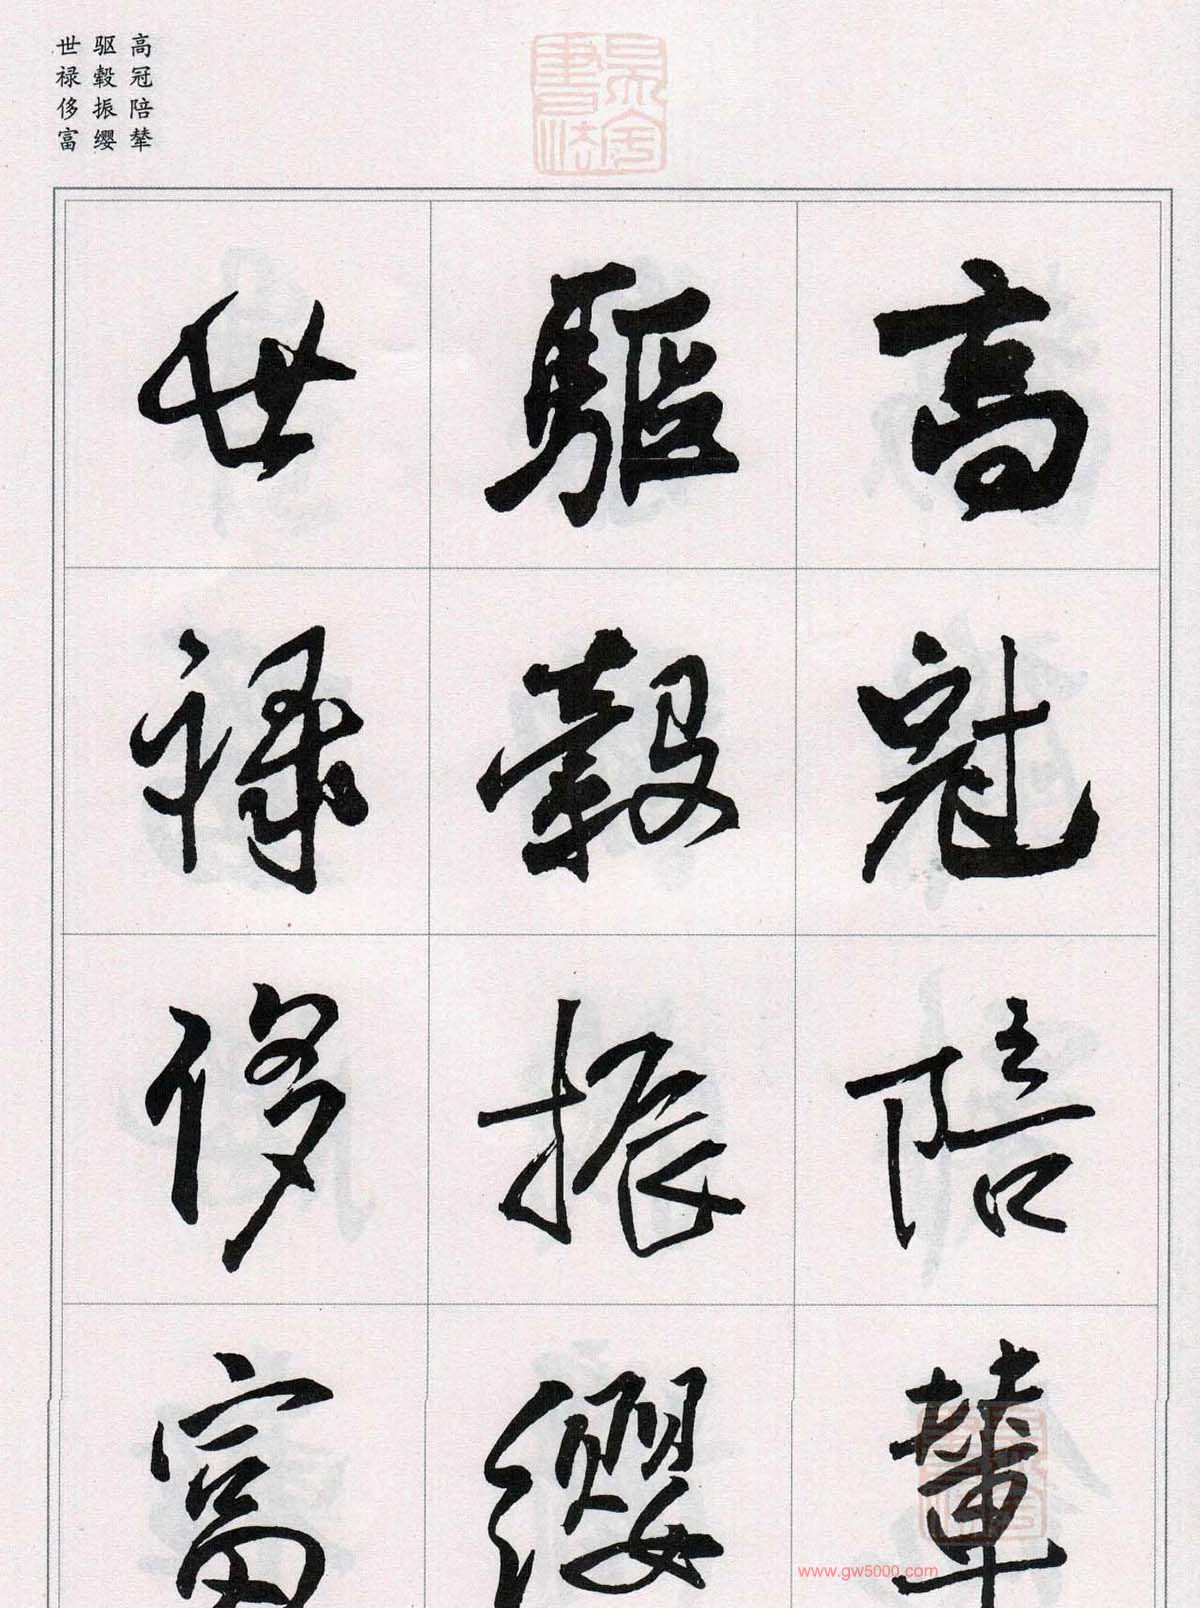 高冠陪辇
驱毂振缨
世禄侈富
高冠陪輦
驅轂振纓
世祿侈富
www.gw5000.com